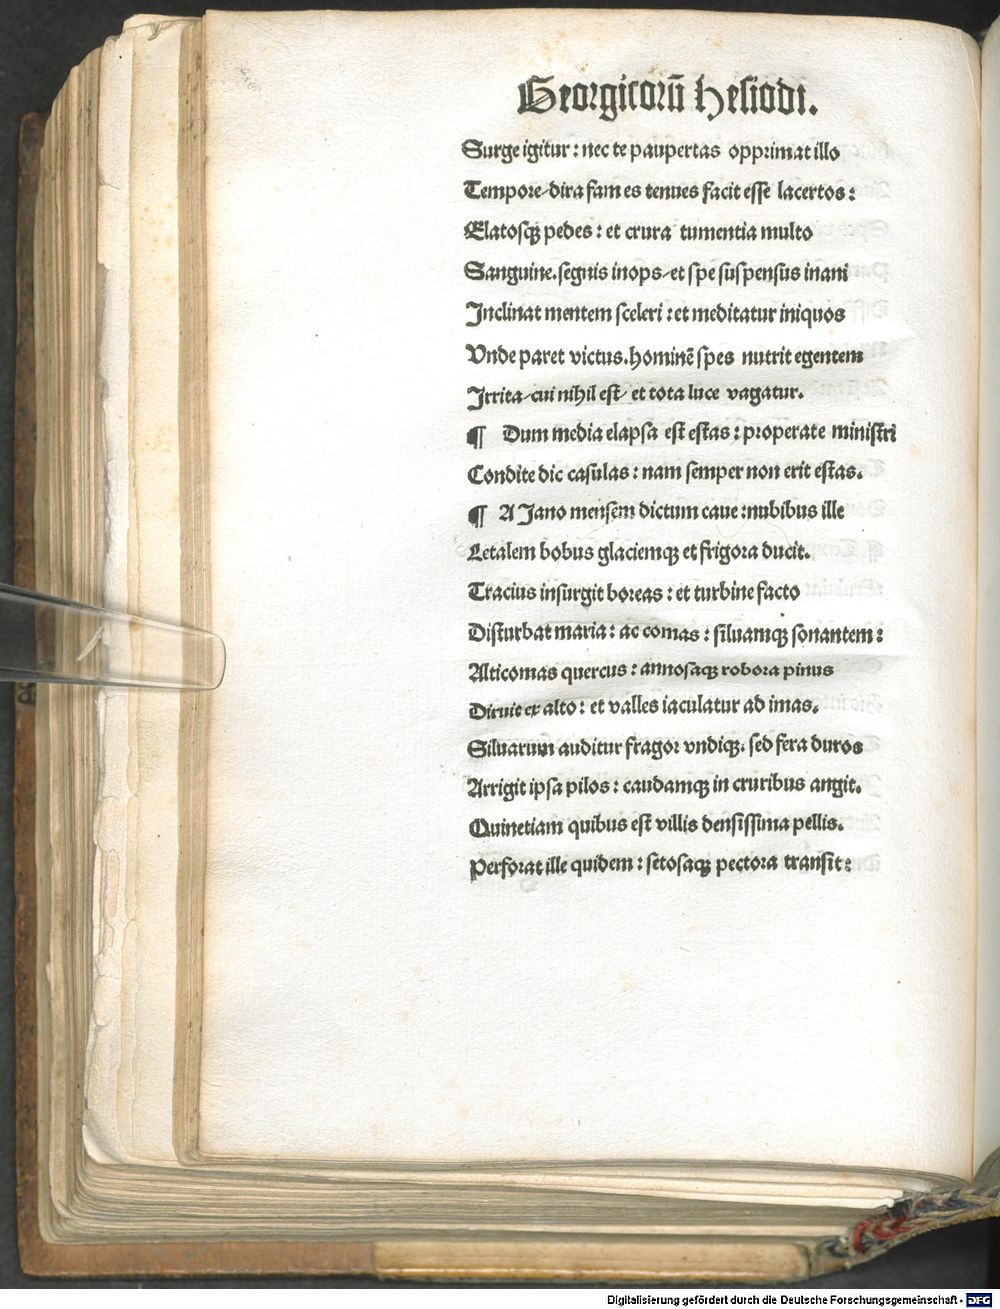 Georgicorū Hesiodi.
Surge igitur : nec te paupertas opprimat illo
Tempore / dira fames tenues facit esse lacertos :
Elatosqꝫ pedes : et crura tumentia multo
Sanguine. segnis inops / et spe suspensus inani
Inclinat mentem sceleri : et meditatur iniquos
Vnde paret victus. hominē spes nutrit egentem
Irrita / cui nihil est / et tota luce vagatur.
¶ Dum media elapsa est estas : properate ministri
Condite dic casulas : nam semper non erit estas.
¶ A Jano mensem dictum caue : nubibus ille
Letalem bobus glaciemqꝫ et frigora ducit.
Tracius insurgit boreas : et turbine facto
Disturbat maria : ac comas : siluamqꝫ sonantem :
Alticomas quercus : annosaqꝫ robora pinus
Diruit ex alto : et valles iaculatur ad imas.
Siluarum auditur fragor vndiqꝫ. sed fera duros
Arrigit ipsa pilos : caudamqꝫ in cruribus angit.
Quinetiam quibus est villis densissima pellis.
Perforat ille quidem : setosaqꝫ pectora transit :
Digitalisierung gefördert durch die Deutsche Forschungsgemeinschaft - DFG